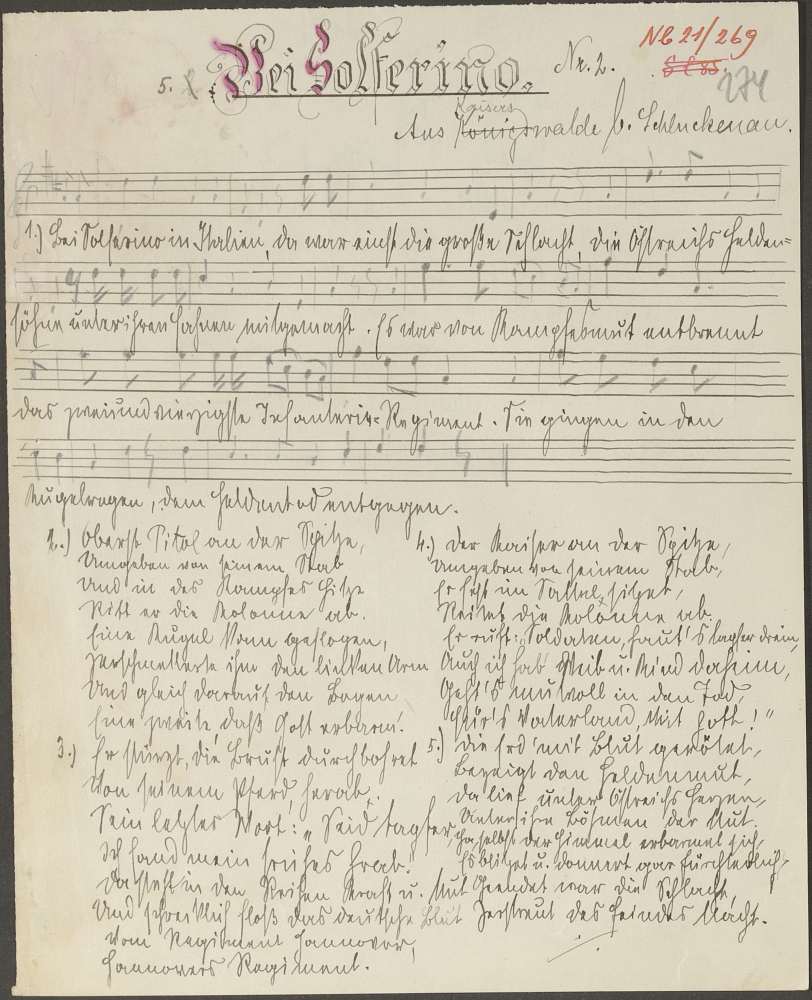 5. Bei Solferino. Nr. 2.
Nl 21/269
274
Kaisers
Aus Königswalde b. Schluckenau.
1.) Bei Solferino in Italien, da war einst die große Schlacht, die Östreichs Helden=
söhne unter ihren Fahnen mitgemacht. Es war von Kampfesmut entbrennt
das zweiundvierzigste Infanterie=Regiment. Sie gingen in den
Kugelregen, dem Heldentod entgegen.
2.) Oberst Pitol an der Spitze,
Umgeben von seinem Stab
Und in des Kampfes Hitze
Ritt er die Kolonne ab.
Eine Kugel kam geflogen,
Zerschmetterte ihm den linken Arm
Und gleich darauf den Bogen
Eine zweite, daß Gott erbarm'.
3.) Er stürzt, die Brust durchbohret
Von seinem Pferd herab,
Sein letztes Wort: „Seid tapfer,
Ich fand mein frühes Grab."
Da steht in den Reihen Kraft u. Mut
Und schrecklich floß das deutsche Blut
Vom Regiment Hannover,
Hannovers Regiment.
4.) Der Kaiser an der Spitze,
Umgeben von seinem Stab,
Er fest im Sattel sitzet,
Reitet die Kolonne ab.
Er ruft: „Soldaten, haut's tapfer drein,
Auch ich hab' Weib u. Kind daheim,
Geht's mutvoll in den Tod,
Für's Vaterland, mit Gott!"
5.) Die Erd' mit Blut gerötet,
Bezeigt den Heldenmut,
Da lief unter Östreichs Herzen,
Unter ihre Böhmen der Mut.
Ja selbst der Himmel erbarmet sich,
Es blitzet u. donnert gar fürchterlich,
Geendet war die Schlacht,
Zerstreut des Feindes Macht.